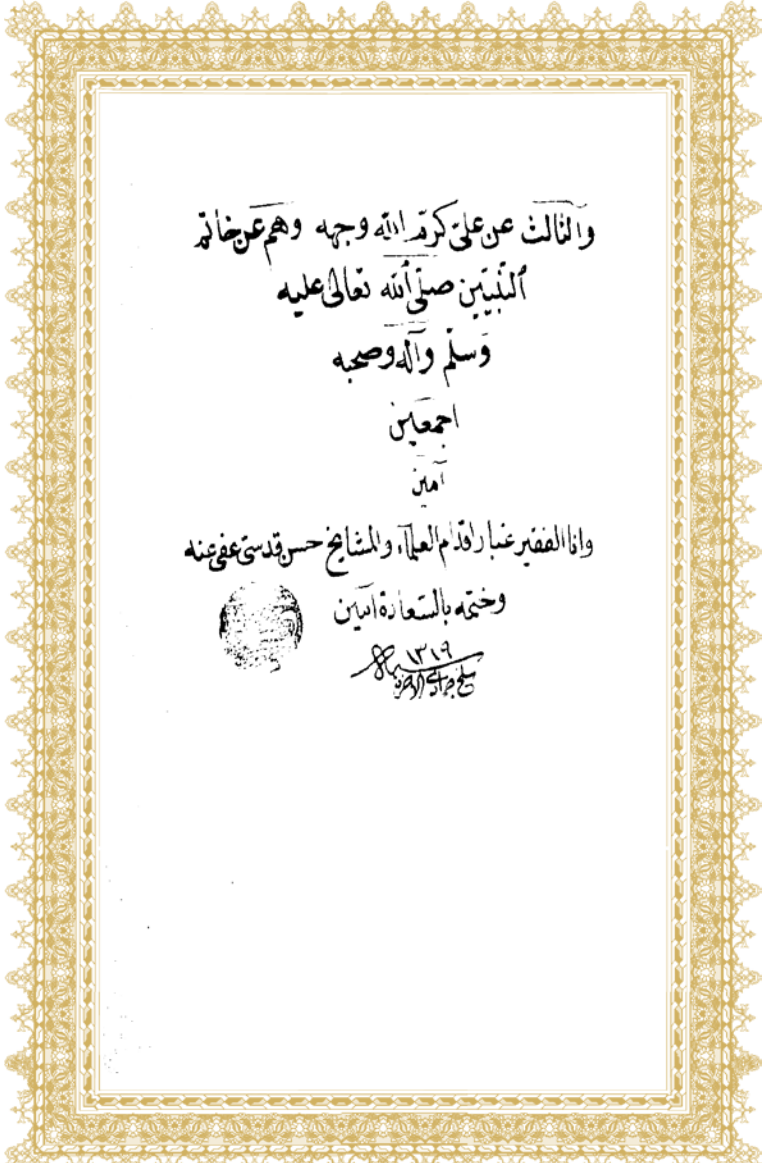 والثالث عن علىّ كرّم الله وجهه وهم عن خاتم
النّبيّين صلّى الله تعالى عليه
وسلّم وآله وصحبه
اجمعين
آمين
وانا الفقير غبار اقدام العلمآء والمشايخ حسن قدسىّ عفى عنه
وختمه بالسّعادة آمين
١٣١٩
سلخ جمادى الاخره